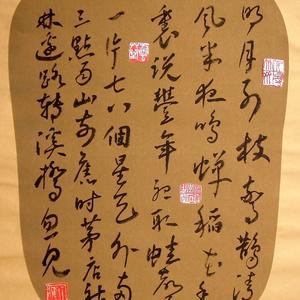 明月別枝驚鵲清
風半夜鳴蟬稻花香
裏說豐年聽取蛙聲
一片七八個星天外兩
三點雨山前舊時茅店社
林邊路轉溪橋忽見